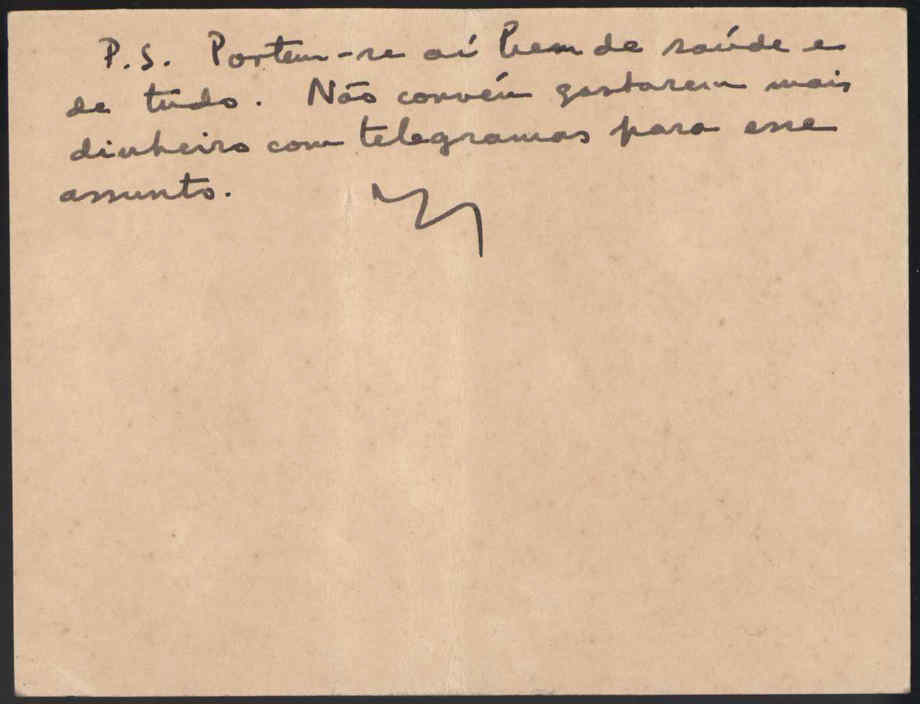 P.S. Portem-se aí bem de saúde e
de tudo. Não convém gastarem mais
dinheiro com telegramas para esse
assunto.